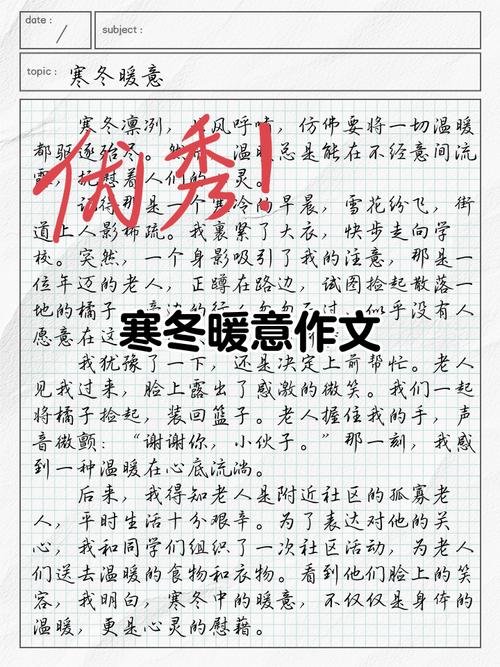 date:
subject:
topic: 寒冬暖意
寒冬凛冽，风呼啸，仿佛要将一切温暖
都驱逐殆尽。然温暖总是能在不经意间流
慰着人们的灵。
记得那是一个寒冷的早晨，雪花纷飞，街
道上人影稀疏。我裹紧了大衣，快步走向学
校。突然，一个身影吸引了我的注意，那是一
位年迈的老人，正蹲在路边，试图捡起散落一
地的橘子。似乎没有人
愿意在这
优秀!
寒冬暖意作文
我犹豫了一下，还是决定上前帮忙。老人
见我过来，脸上露出了感激的微笑。我们一起
将橘子捡起，装回篮子。老人握住我的手，声
音微颤：“谢谢你，小伙子。”那一刻，我感
到一种温暖在心底流淌。
后来，我得知老人是附近社区的孤寡老
人，平时生活十分艰辛。为了表达对他的关
心，我和同学们组织了一次社区活动，为老人
们送去温暖的食物和衣物。看到他们脸上的笑
容，我明白，寒冬中的暖意，不仅仅是身体的
温暖，更是心灵的慰藉。